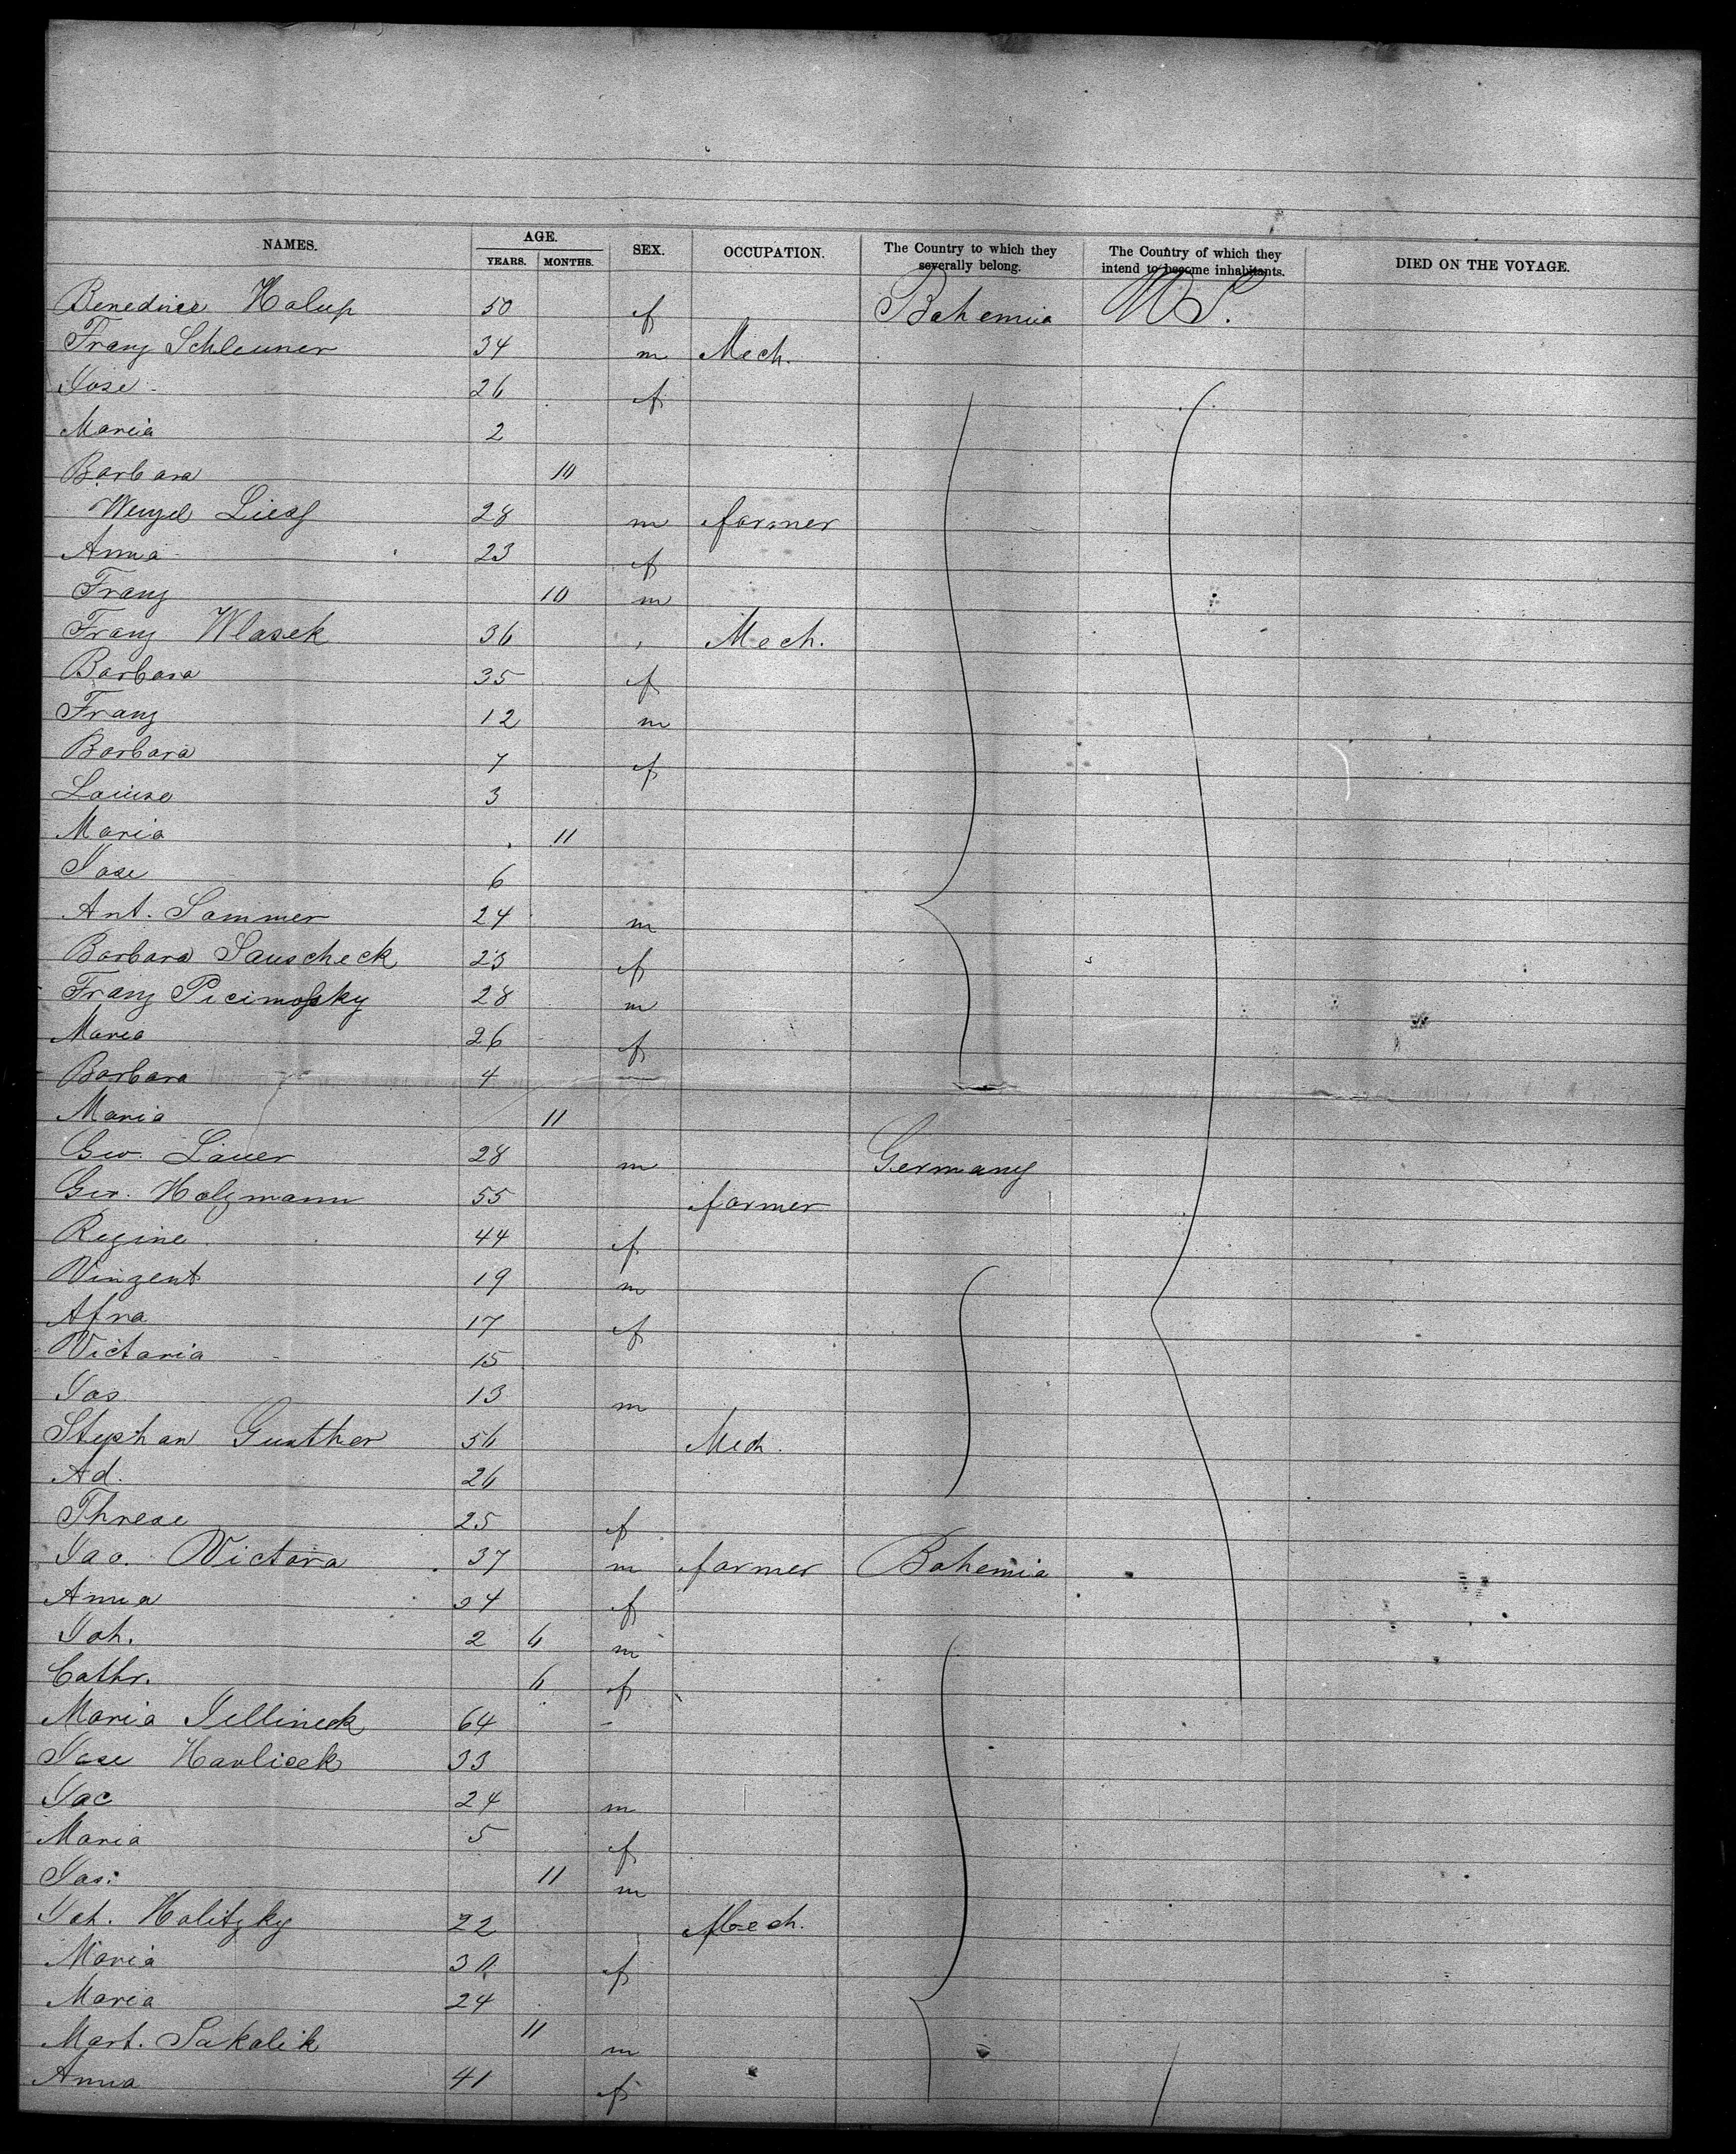 NAMES. AGE. SEX. OCCUPATION. The Country to which they severally belong. The Country of which they intend to become inhabitants. DIED ON THE VOYAGE.
YEARS. MONTHS.
Halup 50 f Bohemia
Franz Schleuner 34 m Mech.
Jose 26 f
Maria 2
Barbara 10
Wenzel 28 m farmer
Anna 23 f
Franz 10 m
Franz Wlasek 36 Mech.
Barbara 35 f
Franz 12 m
Barbara 7 f
Louise 3
Maria 11
Jose 6
Ant. Sommer 24 m
Barbara Sauscheck 23 f
Franz 28 m
Maria 26 f
Barbara 4
Maria 11
Geo. Lauer 28 m Germany
Geo. Holzmann 55 farmer
Regine 44 f
Vinzent 19 m
Afra 17 f
Victoria 15
Jos 13 m
Stephan Gunther 56 Mech.
Ad. 26
Threse 25 f
Victora 37 m farmer Bohemia
Anna 34 f
Joh. 2 6 m
Cathr. 6 f
Maria Jellineck 64
Jose Havlicek 33
Jac 24 m
Maria 5 f
Jos. 11 m
Joh. Holitzky 22 Mech.
Maria 30 f
Maria 24
Mart. Sakalik 11 m
Anna 41 f